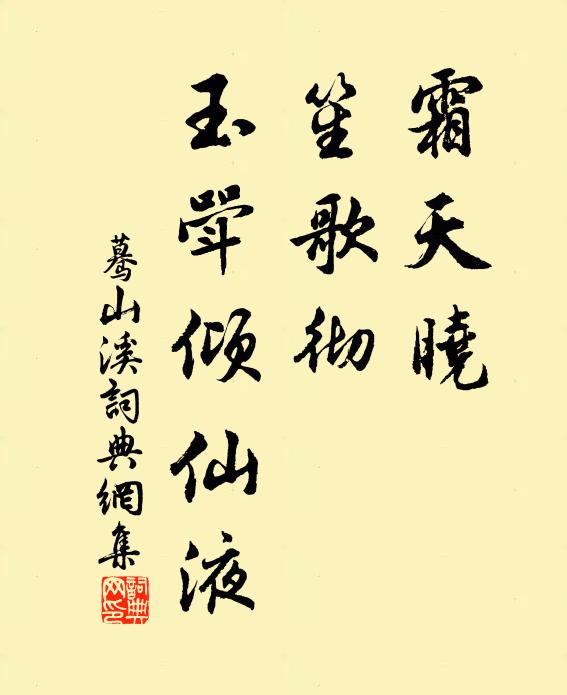 霜天曉
笙歌彻
玉斝傾仙液
驀山溪詞典網集
詞典网印